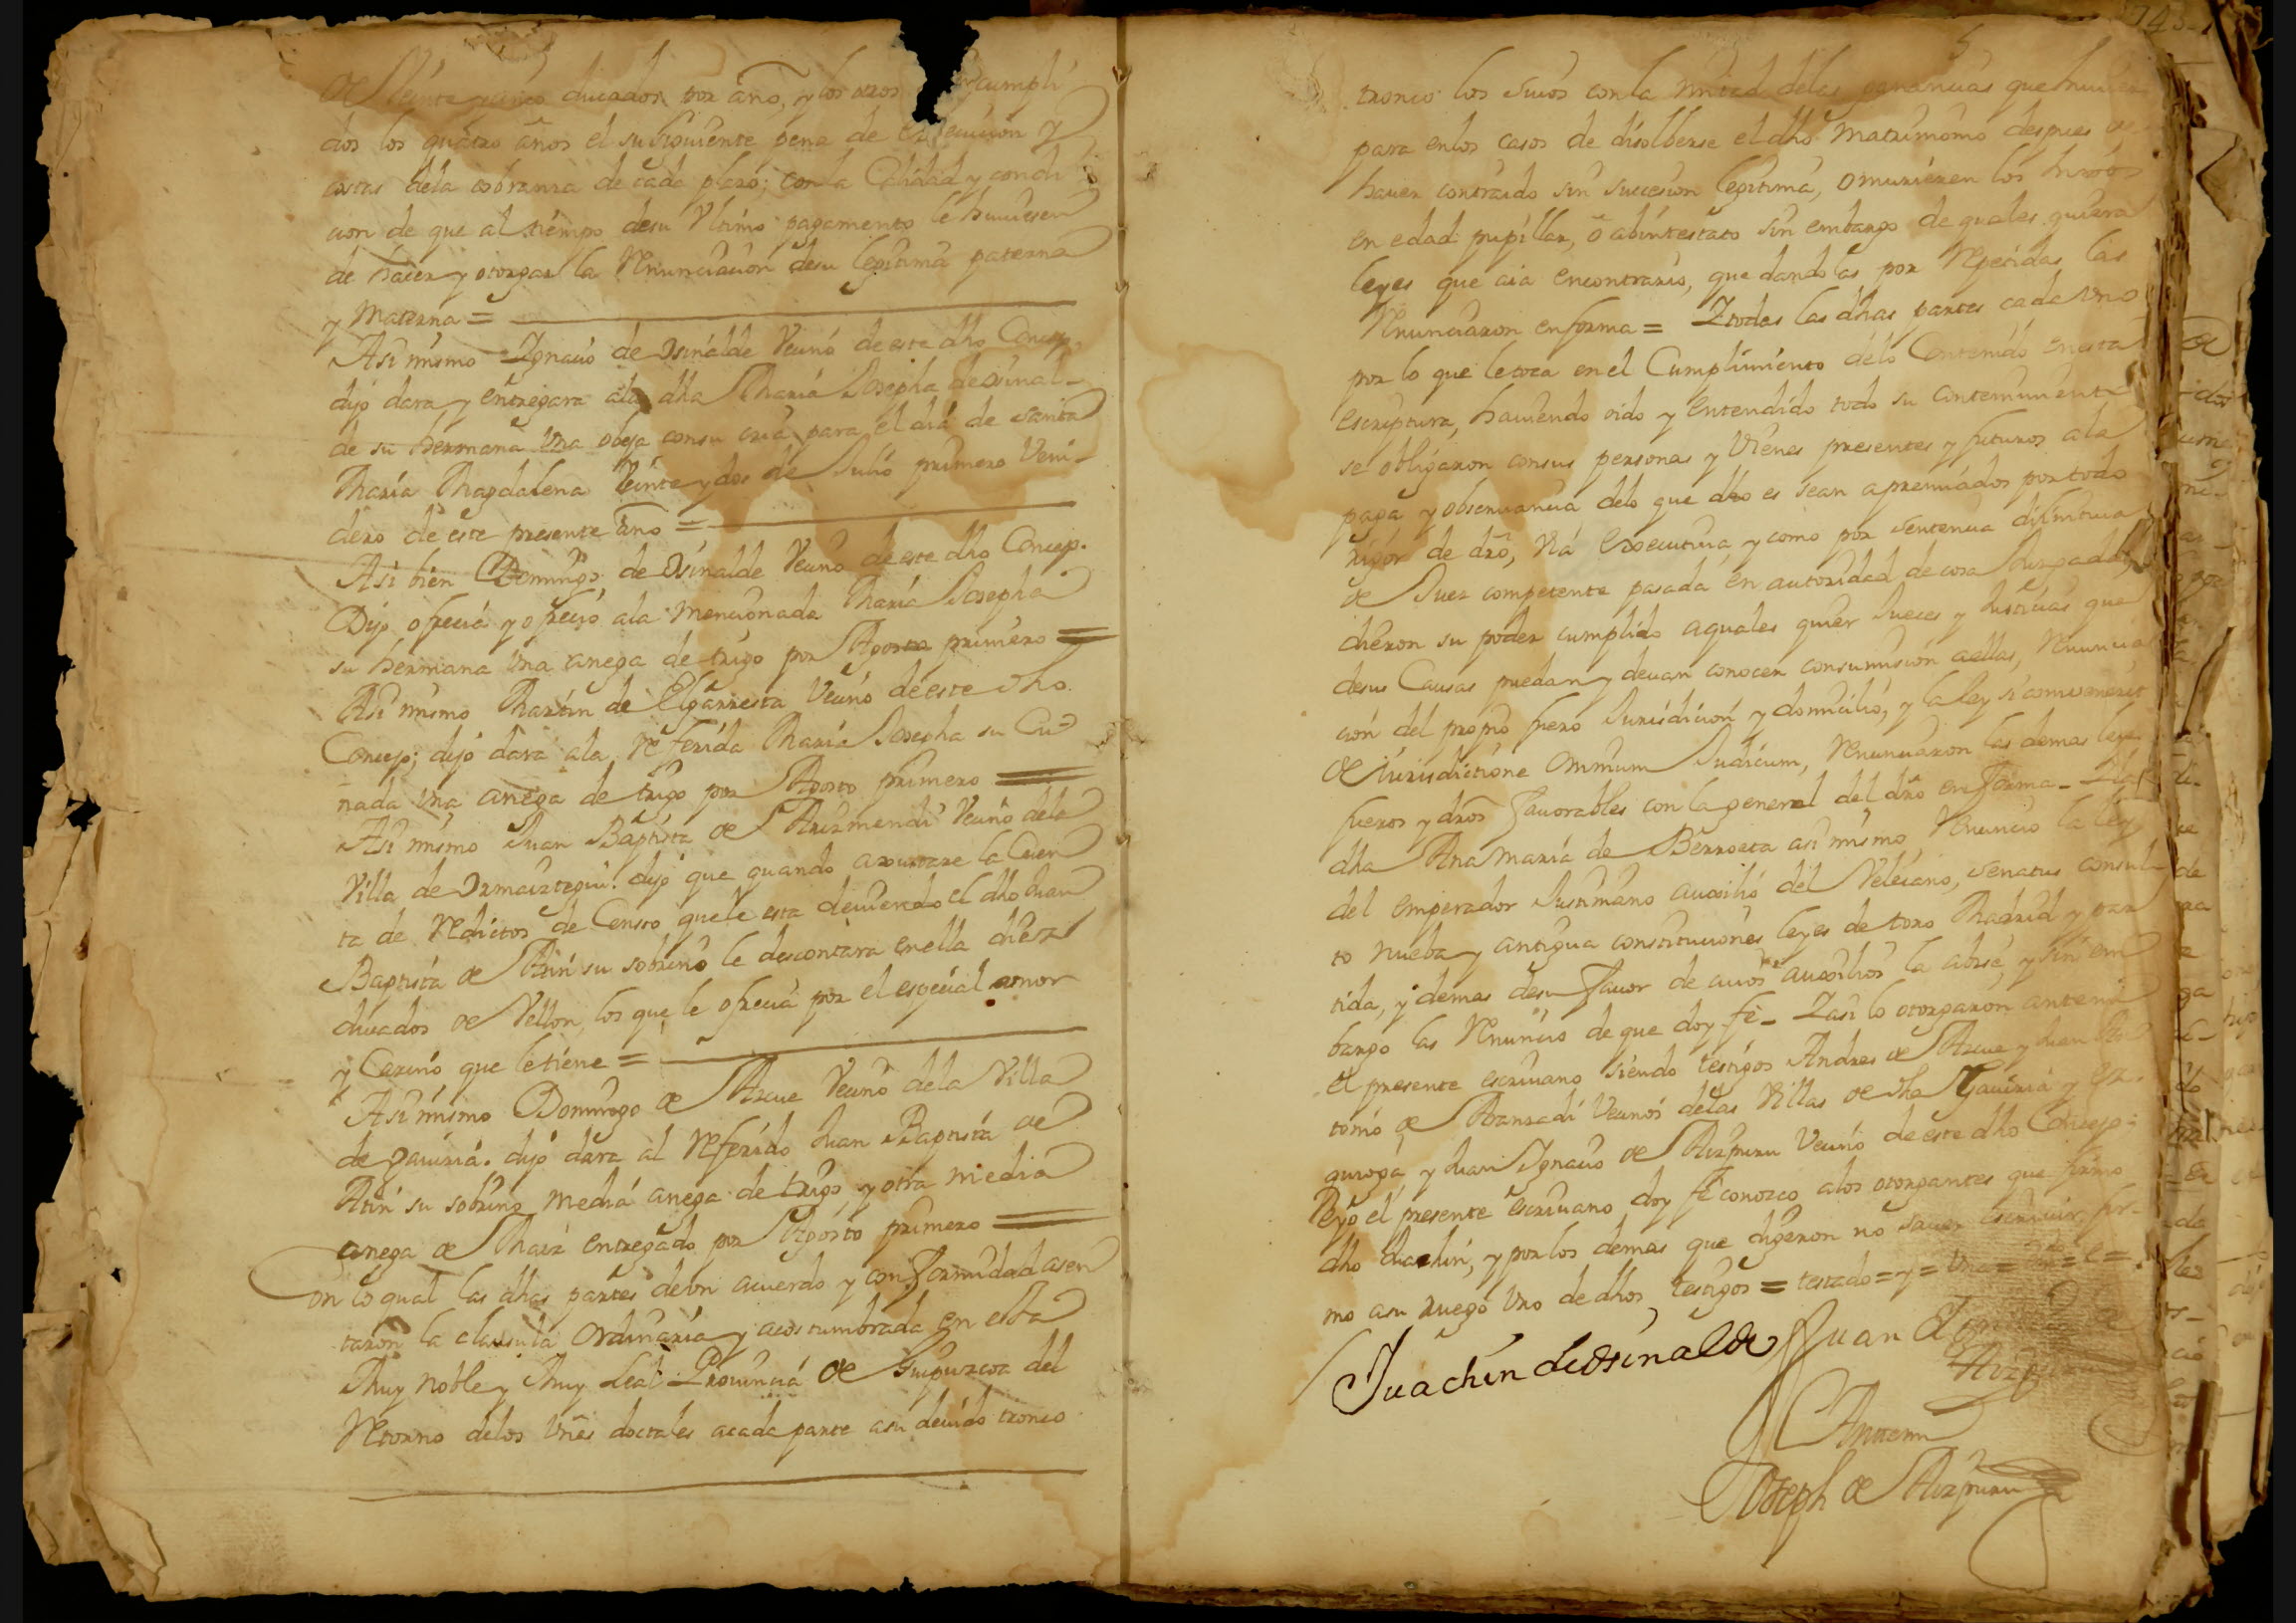 de Veinte y cinco ducados por año, y los otros cumpli
dos los quatro años el subsiguiente pena de execucion y
costas dela cobranza de cada plazo; con la Calidad y condi
cion de que al tiempo desu Ultimo pagamento le huuiesen
de hacer y otorgar la Renunciacion desu legitima paterna
y Materna =
Asi mismo Ignacio de Osinalde Vecino de este dho Concejo,
dijo dara y entregara ala dha Maria Josepha de Osinal-
de su hermana Una obeja consu cria para el dia de santa
Maria Magdalena Veinte y dos de Julio primero Veni-
dero de este presente año =
Asi bien Domingo de Osinalde Vecino de este dho Concejo.
Dijo ofrecia y ofrecio ala Mencionada Maria Josepha
su hermana Una anega de trigo por Agosto primero =
Asi mismo Martin de Elgarresta Vecino de este dho
Concejo; dijo dara ala Referida Maria Josepha su Cu
ñada Una anega de trigo por Agosto primero =
Asi mismo Juan Baptista de Arizmendi Vecino dela
Villa de Ormaiztegui. dijo que quando axustare la Cuen
ta de Reditos de Censo que le esta deuiendo el dho Juan
Baptista de Arin su sobrino le descontara en ella diez
ducados de Vellon, los que le ofrecia por el especial amor
y Carino que le tiene =
Asi mismo Domingo de Azcue Vecino dela Villa
de gauiria. dijo dara al Referido Juan Baptista de
Arin su sobrino media anega de trigo, y otra media
anega de Maiz entregado por Agosto primero =
Con lo qual las dhas partes de Un acuerdo y conformidad asen
taron la clausula Ordinaria y acostumbrada en esta
Muy Noble y Muy Leal Prouincia de Guipuzcoa del
Retorno delos Vnes doctales acada parte asu deuido tronco
tronco los suios con la mitad delas ganancias que huuier
para en los casos de disolberse el dho Matrimonio despues de
hauer contraido sin succesion legitima, o murieren los hixos
en edad pupillar, o abintestato sin embargo de quales quiera
leyes que aia encontrario, que dandolas por Repetidas las
Renunciaron en forma = I todas las dhas partes cada Uno
por lo que le toca en el Cumplimiento delo Contenido en esta
escriptura, hauiendo oido y entendido todo su contenimiento
se obligaron consus personas y Vienes presentes y futuros ala
paga y obseruancia delo que dho es sean apremiados por todo
rigor de dro, Via executiua, y como por sentencia difinitiua
de Juez competente pasada en autoridad de cosa Juzgada,
dieron su poder cumplido aquales quier Jueces y Justicias que
desus Causas puedan y deuan conocer consumision aellas, Renuncia
cion del propio fuero Jurisdicion y domicilio, y la ley si conuenerit
de Jurisdictione Omnium Judicum, Renunciaron las demas leyes
fueros y dros fauorables con la general del dro en forma - I la
dha Ana Maria de Berroeta asi mismo, Renuncio la ley
del emperador Justiniano auxilio del Veleiano, senatus consul-
to nueba y antigua constituciones leyes de toro Madrid y par
tida, y demas desu fauor de cuios auxilios la abisé, y sin em
bargo las Renuncio de que doy fe - I asi lo otorgaron ante mi
el presente escriuano siendo testigos Andres de Azcue y Juan
de Aranzadi Vecinos delas Villas de dha Gauiria y
quiroga, y Juan Ignacio de Aizpuru Vecino de este dho Concejo:
Yo el presente escriuano doy fe conozco alos otorgantes que firmo
dho Juachin, y por los demas que digeron no sauer escriuir, fir-
mo asu ruego Uno de dhos testigos = testado = y = Una =
Juachin de Osinalde Juan
Ante mi
Joseph de Aizpuru